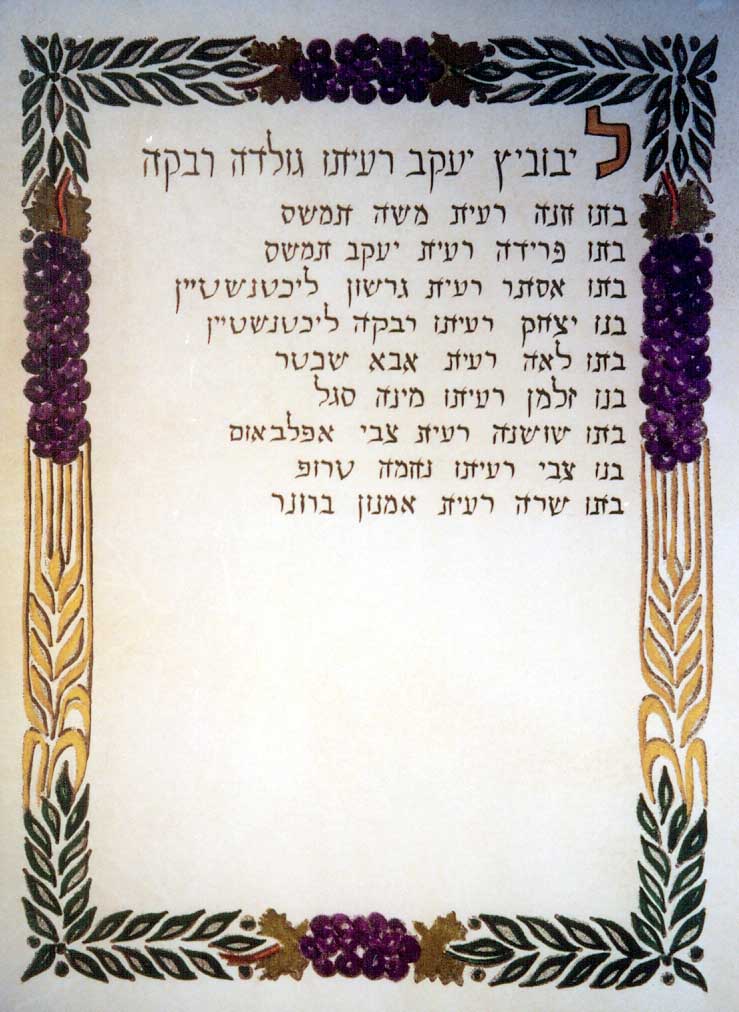 ליבוביץ יעקב רעיתו גולדה רבקה
בתו חנה רעית משה תמשס
בתו פרידה רעית יעקב תמשס
בתו אסתר רעית גרשון ליכטנשטיין
בנו יצחק רעיתו רבקה ליכטנשטיין
בתו לאה רעית אבא שכטר
בנו זלמן רעיתו מינה סגל
בתו שושנה רעית צבי אפלבאום
בנו צבי רעיתו נחמה טרופ
בתו שרה רעית אמנון ברונר